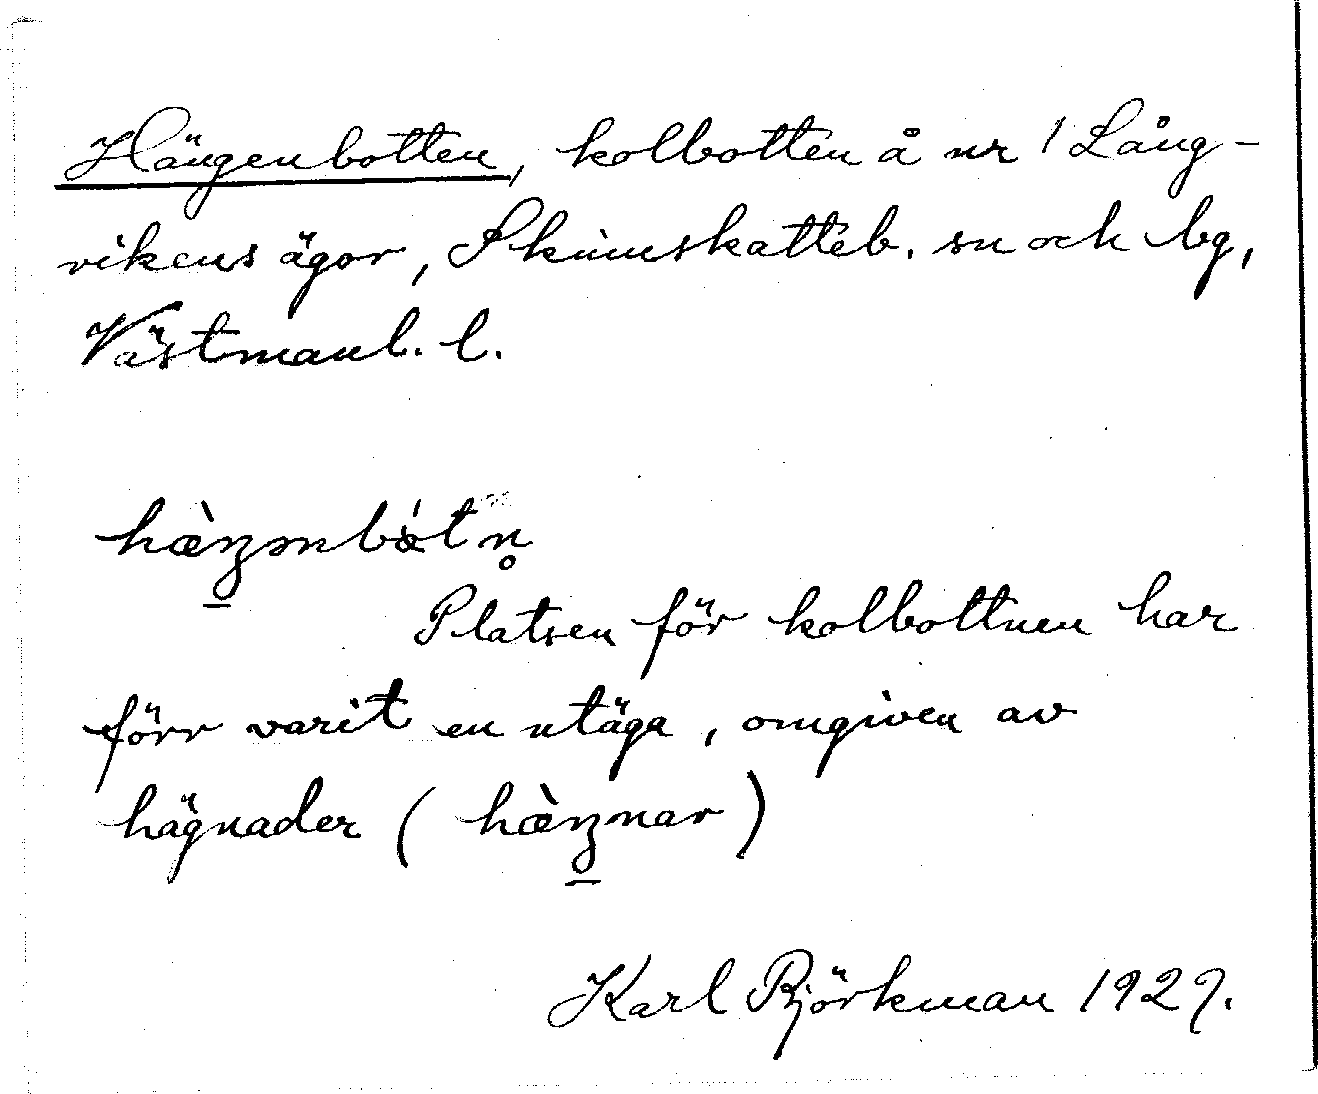 Hängenbotten, kolbotten å nr 1 Lång-
vikens ägor, Skinnskatteb. sn och bg,
Västmanl. l.
hæ̀ŋənbòtn̥
Platsen för kolbottnen har
förr varit en utäga, omgiven av
hägnader (hæ̀ŋnar)
Karl Björkman 1929.